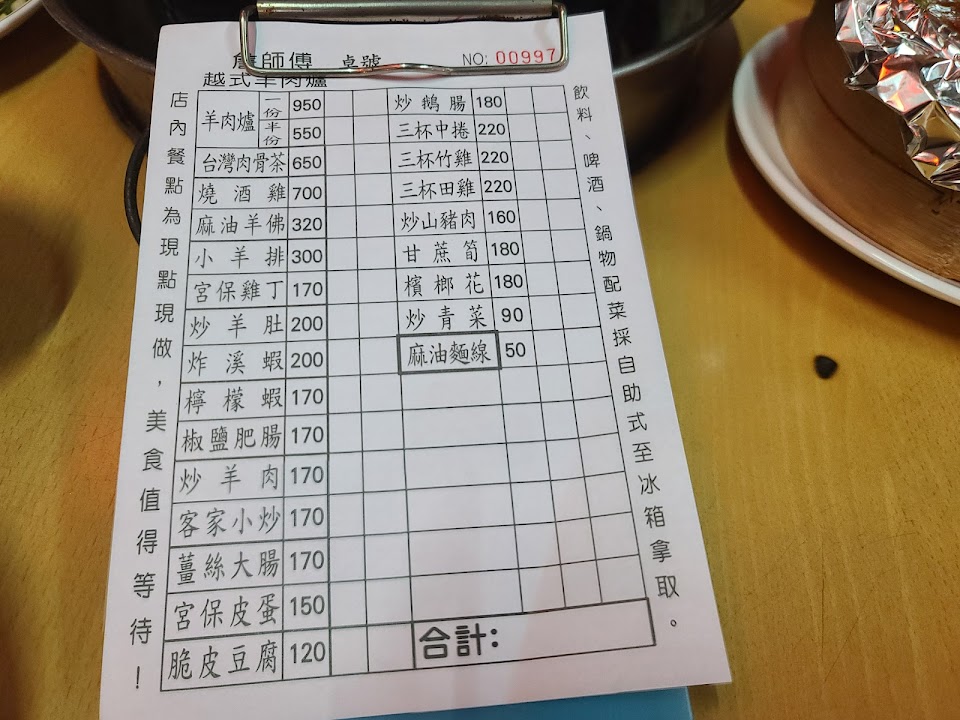 詹師傅 桌號 NO: 00997
越式羊肉爐
店內餐點為現點現做，美食值得等待！
羊肉爐 一份 950
半份 550
台灣肉骨茶 650
燒酒雞 700
麻油羊佛 320
小羊排 300
宮保雞丁 170
炒羊肚 200
炸溪蝦 200
檸檬蝦 170
椒鹽肥腸 170
炒羊肉 170
客家小炒 170
薑絲大腸 170
宮保皮蛋 150
脆皮豆腐 120
炒鵝腸 180
三杯中捲 220
三杯竹雞 220
三杯田雞 220
炒山豬肉 160
甘蔗筍 180
檳榔花 180
炒青菜 90
麻油麵線 50
合計:
飲料、啤酒、鍋物配菜採自助式至冰箱拿取。